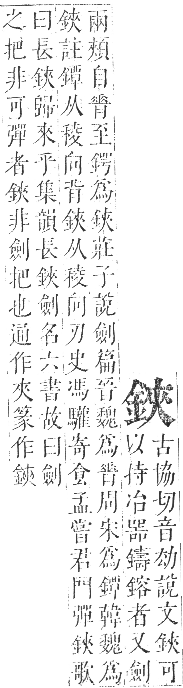 鋏
古協切音劫說文鋏可
以持冶器鑄鎔者又劍
兩頰自脊至鍔為鋏莊子說劍篇晉魏為脊周宋為鐔韓魏為
鋏註鐔从稜向背鋏从稜向刃史馮驩寄食孟嘗君門彈鋏歌
曰長鋏歸來乎集韻長鋏劍名六書故曰劍
之把非可彈者鋏非劍把也通作夾篆作鋏